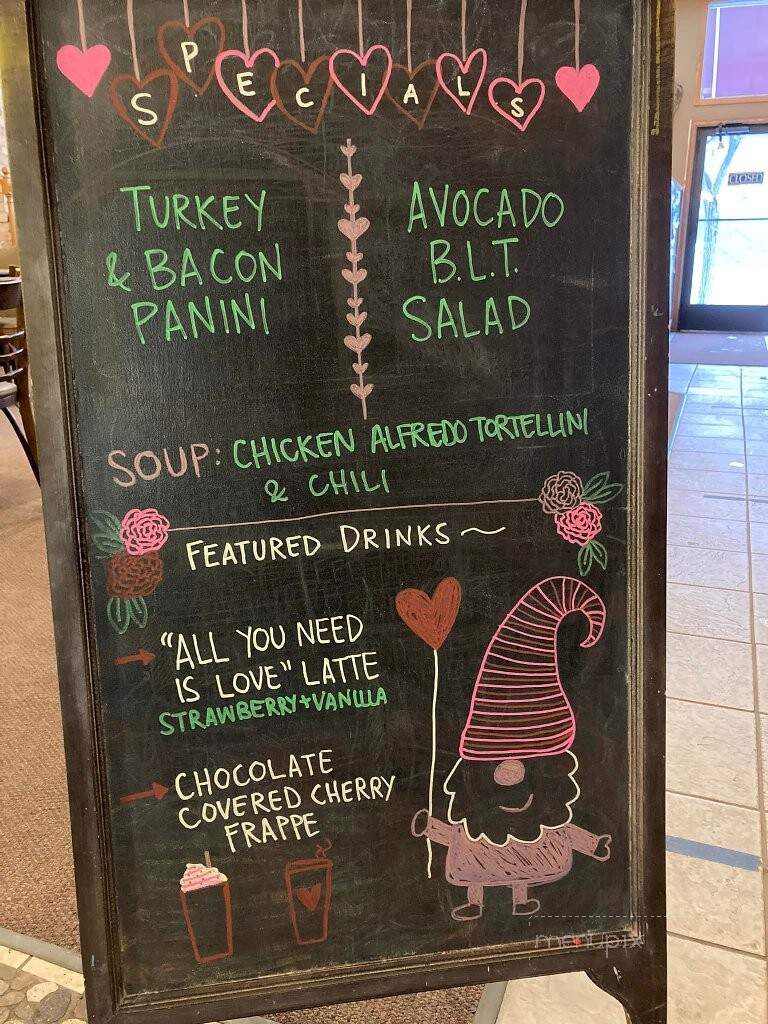 SPECIALS
TURKEY
& BACON
PANINI
AVOCADO
B.L.T.
SALAD
SOUP: CHICKEN ALFREDO TORTELLINI
& CHILI
FEATURED DRINKS ~
"ALL YOU NEED
IS LOVE" LATTE
STRAWBERRY + VANILLA
CHOCOLATE
COVERED CHERRY
FRAPPE
CLOSED
menupix